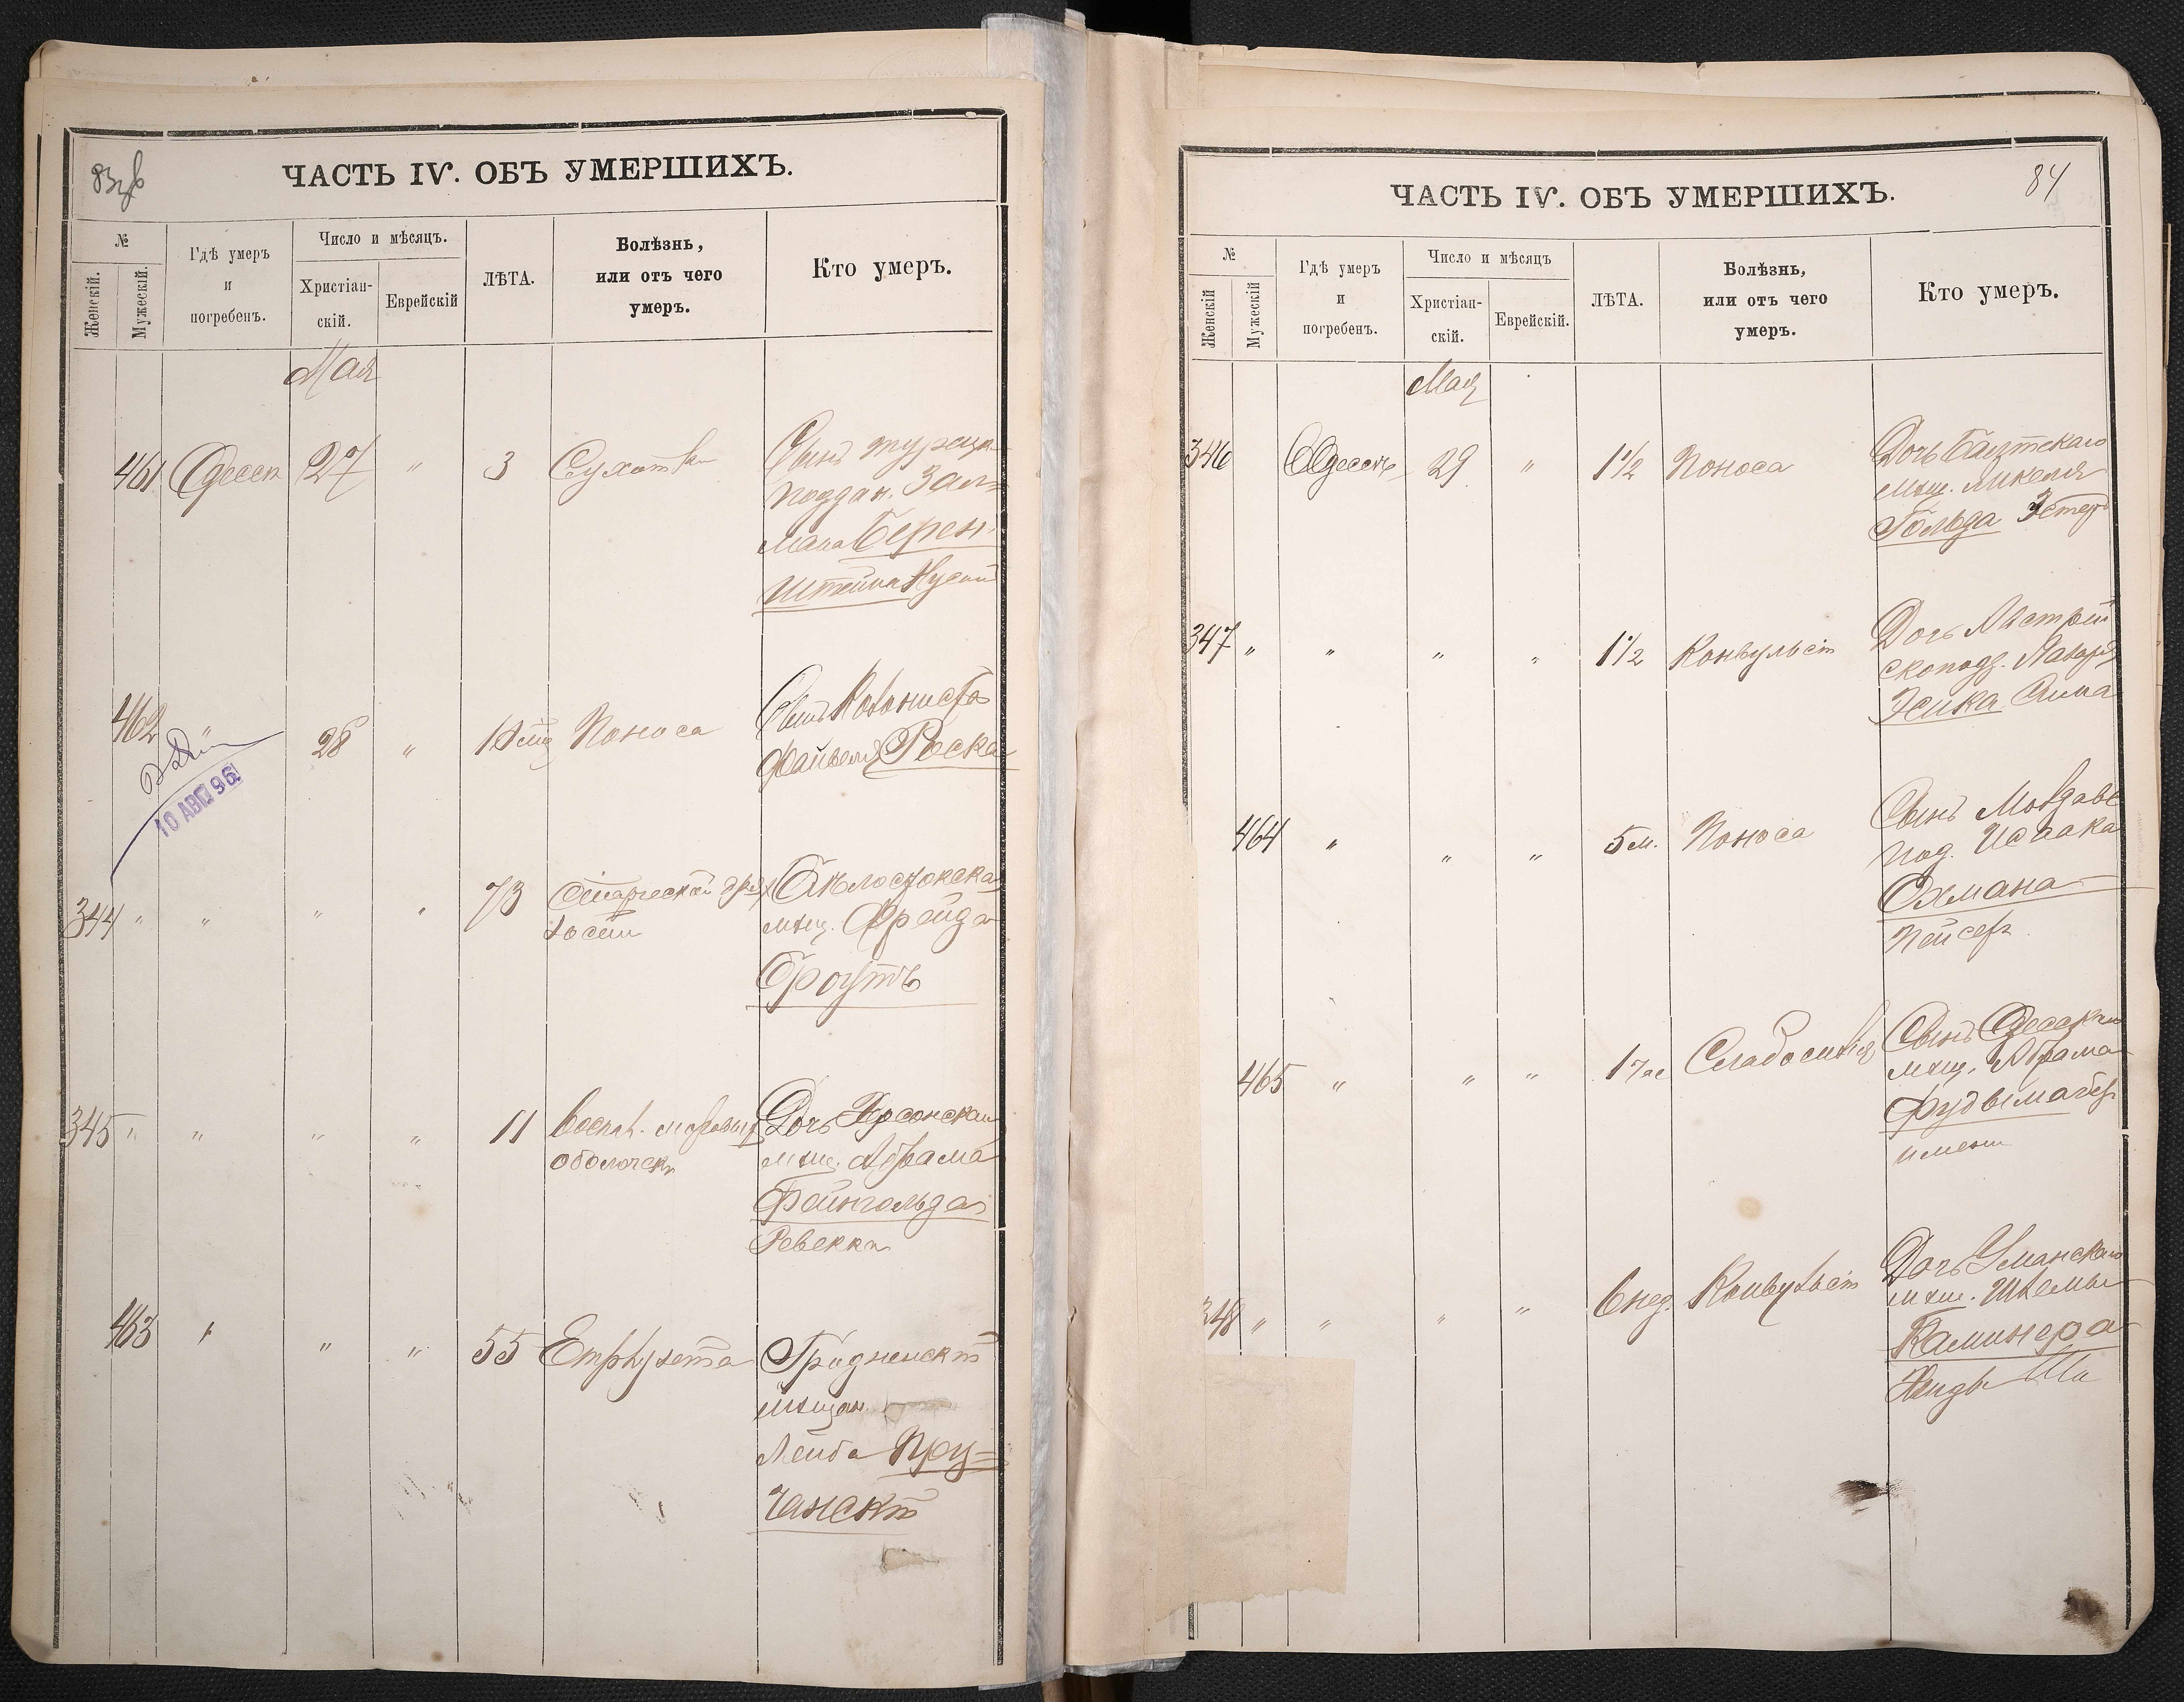 83 об
ЧАСТЬ IV. ОБЪ УМЕРШИХЪ.
№
Женскій.
Мужескій.
Гдѣ умеръ
и
погребенъ.
Число и мѣсяцъ.
Христіан-
скій.
Еврейскій
ЛѢТА.
Болѣзнь,
или отъ чего
умеръ.
Кто умеръ.
Мая
461 Одесск 27 " 3 Сухотка
Сынъ турецк.
поддан. Зал=
мана Берен-
штейна
462 " 28 " Поноса
Сынъ Колониста
Файвеля Роска
10 АВГ 96
344 " " " " 73 Старческой дрях
лости
Бѣлостокская
мѣщ. Фрейда
345 " " " " 11 Воспал. мозговых
оболочекъ
Дочь Херсонскаго
мѣщ. Абрама
Фейнгольда
Ревекка
463 " " " 55 Emphysema
Гродненскій
мѣщан.
Лейба Пру=
чанскій
84
ЧАСТЬ IV. ОБЪ УМЕРШИХЪ.
№
Женскій
Мужескій
Гдѣ умеръ
и
погребенъ.
Число и мѣсяцъ
Христіан-
скій.
Еврейскій.
ЛѢТА.
Болѣзнь,
или отъ чего
умеръ.
Кто умеръ.
Мая
346 Одессѣ 29 " 1½ Поноса
Дочь Балтскаго
мѣщ. Микеля
Гольда Эстеръ
347 " " " " 1½ Конвульсій
Дочь Австрій
скоподд. Лазаря
Анна
464 " " " 5 м. Поноса
Сынъ Молдавс
под. Исаака
Охмана
Пейсехъ
465 " " " 1 час Слабосилія
Сынъ Одесскаго
мѣщ. Абрама
348 " " " " 6 нед. Конвульсій
Дочь Уманскаго
мѣщ. Шлемы
Каминера